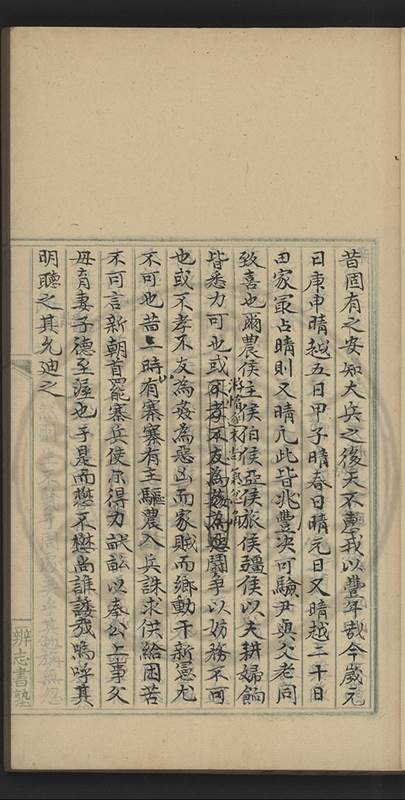 昔固有之安知大兵之後天不畀我以豐年哉今歲元
日庚申晴越五日甲子晴春日晴元日又晴越二十日
田家最占晴則又晴凡此皆兆豐決可驗尹與父老同
致喜也爾農侯主侯伯侯亞侯旅侯彊侯以夫耕婦餉
皆悉力可也或游惰逐末尚氣忿爭以妨務不可
也或不孝不友為姦為惡凶而家賊而鄉動干新憲尤
不可也昔一時有寨寨有主驅農入兵誅求供給困苦
不可言新朝首罷寨兵使尔得力畎畝以奉公上事父
母育妻子德至渥也于是而懋不懋尚誰諉哉嗚呼其
明聽之其允迪之
辨志書塾